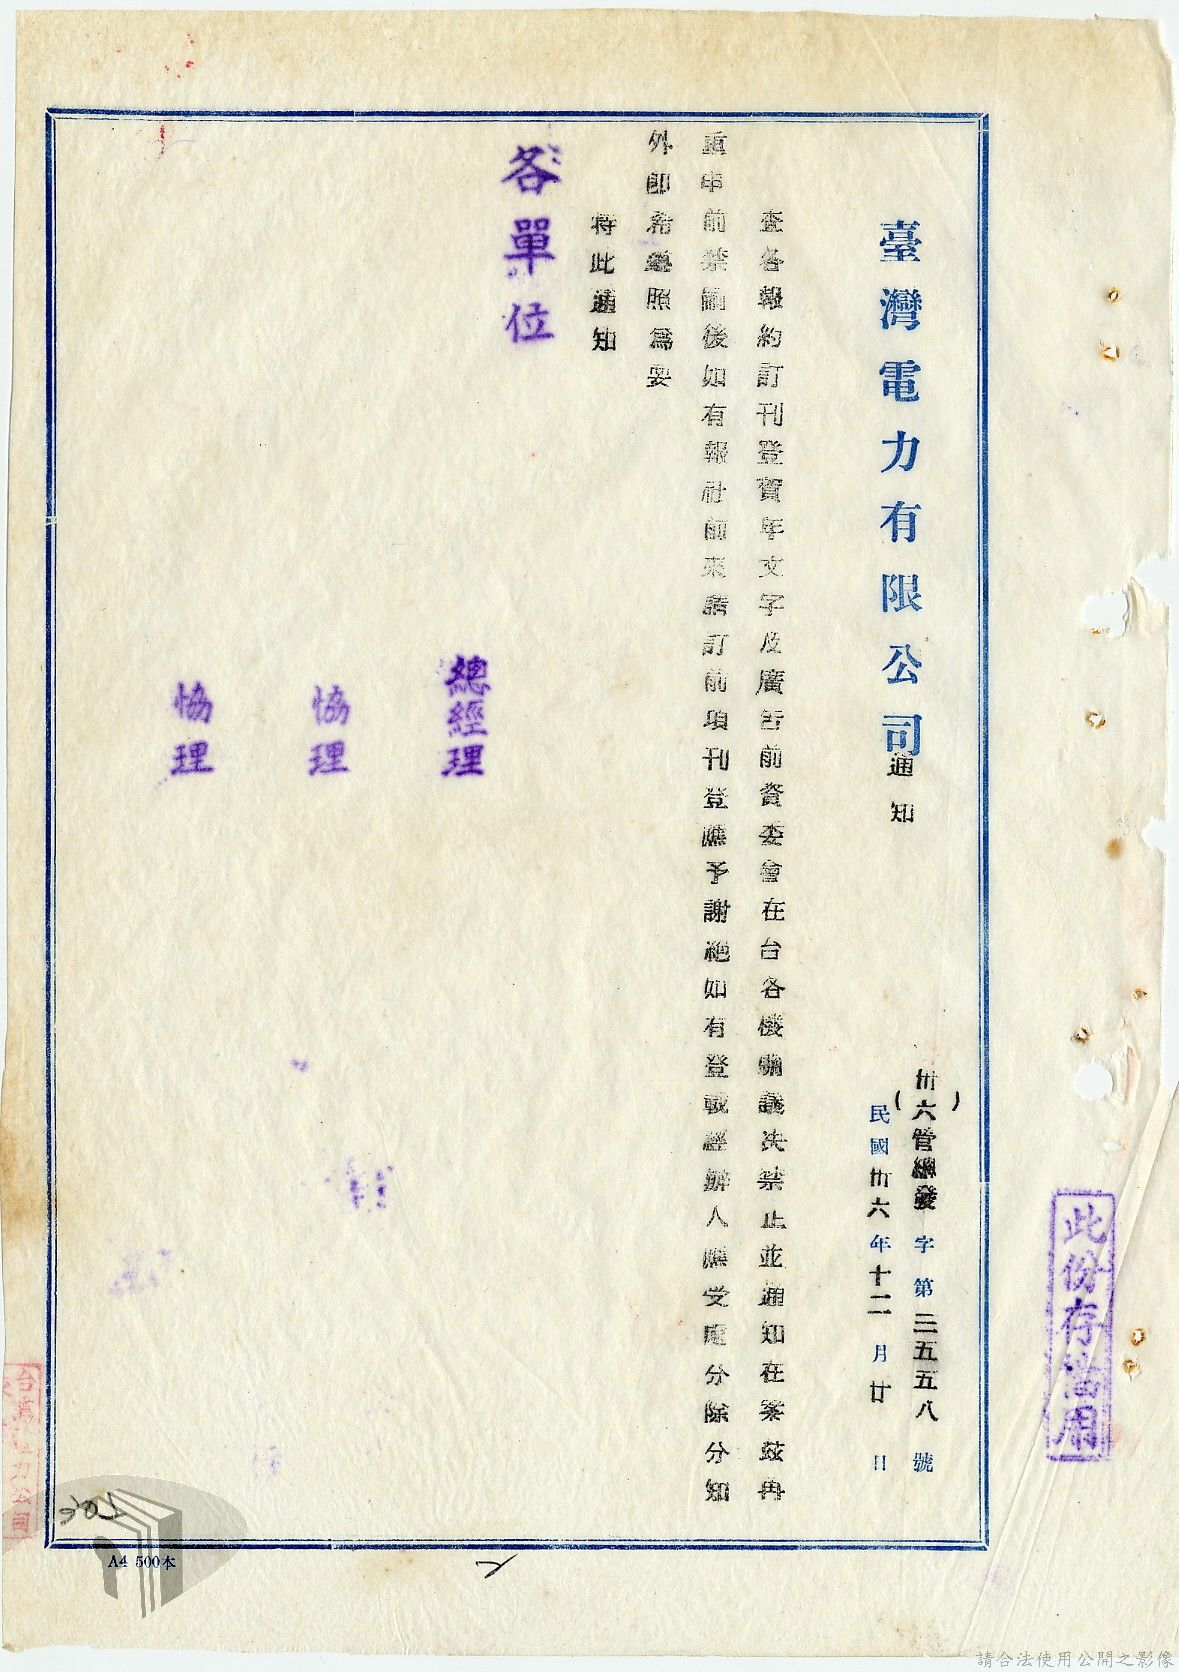 臺灣電力有限公司通知
(卅六)管總發字第三五五八號
民國卅六年十二月廿日
查各報約訂刊登賀年文字及廣告前資委會在台各機關議決禁止並通知在案茲再
重申前禁嗣後如有報社前來請訂前項刊登應予謝絕如有登載經辦人應受處分除分知
外即希遵照為要
特此通知
各單位
總經理
協理
協理
此份存備用
A4 500本
請合法使用公開之影像